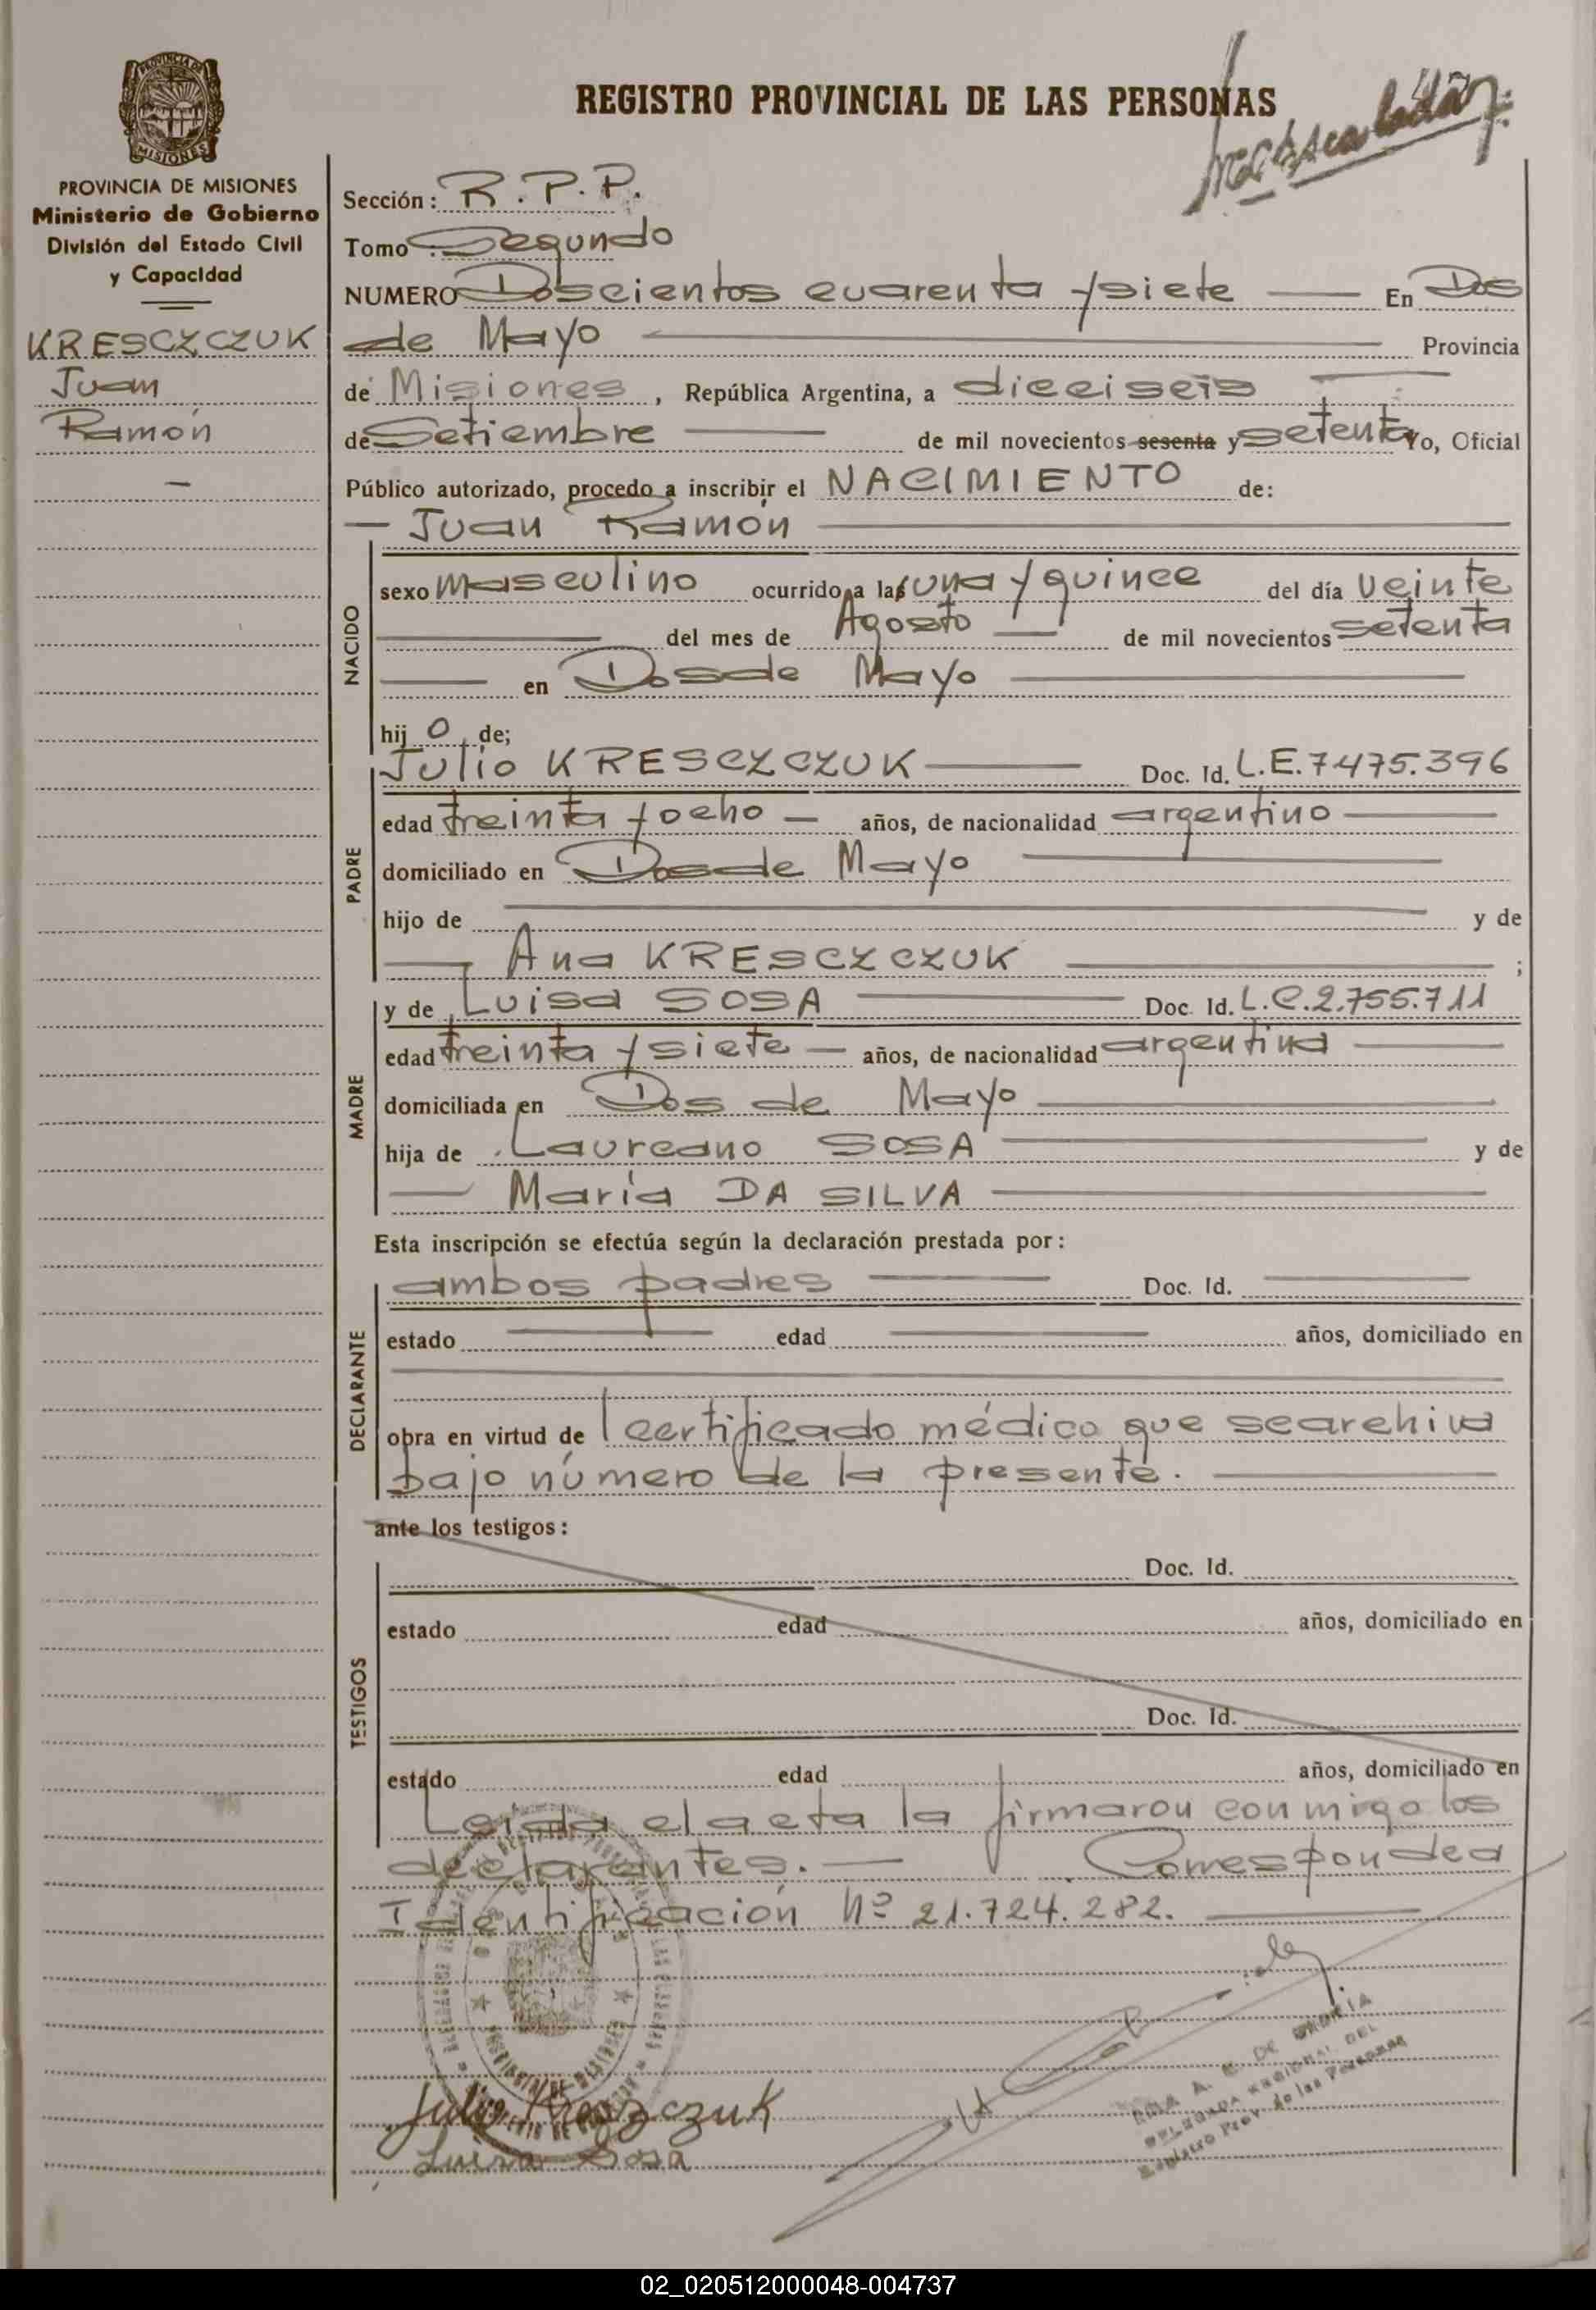 REGISTRO PROVINCIAL DE LAS PERSONAS
PROVINCIA DE
MISIONES
PROVINCIA DE MISIONES
Ministerio de Gobierno
División del Estado Civil
y Capacidad
KRESCZCZUK
Juan
Ramón
Sección: R.P.P.
Tomo Segundo
NUMERO Doscientos cuarenta y siete En Dos
de Mayo Provincia
de Misiones, República Argentina, a dieciseis
de Setiembre de mil novecientos sesenta y setenta Yo, Oficial
Público autorizado, procedo a inscribir el NACIMIENTO de:
Juan Ramón
NACIDO
sexo masculino ocurrido a las una y quince del día veinte
del mes de Agosto de mil novecientos setenta
en Dos de Mayo
hij o de;
PADRE
Julio KRESCZCZUK Doc. Id. L.E. 7475.396
edad treinta y ocho años, de nacionalidad argentino
domiciliado en Dos de Mayo
hijo de y de
Ana KRESCZCZUK ;
MADRE
y de Luisa SOSA Doc. Id. L.C. 2.755.711
edad treinta y siete años, de nacionalidad argentina
domiciliada en Dos de Mayo
hija de Laureano SOSA y de
María DA SILVA
Esta inscripción se efectúa según la declaración prestada por:
DECLARANTE
ambos padres Doc. Id.
estado edad años, domiciliado en
obra en virtud de l certificado médico que se archiva
bajo número de la presente.
ante los testigos:
TESTIGOS
Doc. Id.
estado edad años, domiciliado en
Doc. Id.
estado edad años, domiciliado en
Leida el acta la firmaron conmigo los
declarantes. Corresponde a
Identificación Nº 21.724.282.
A. DE
DELEGADA REGIONAL DEL
Registro Prov. de las Personas
Julio Kresczczuk
Luisa Sosa
02_020512000048-004737